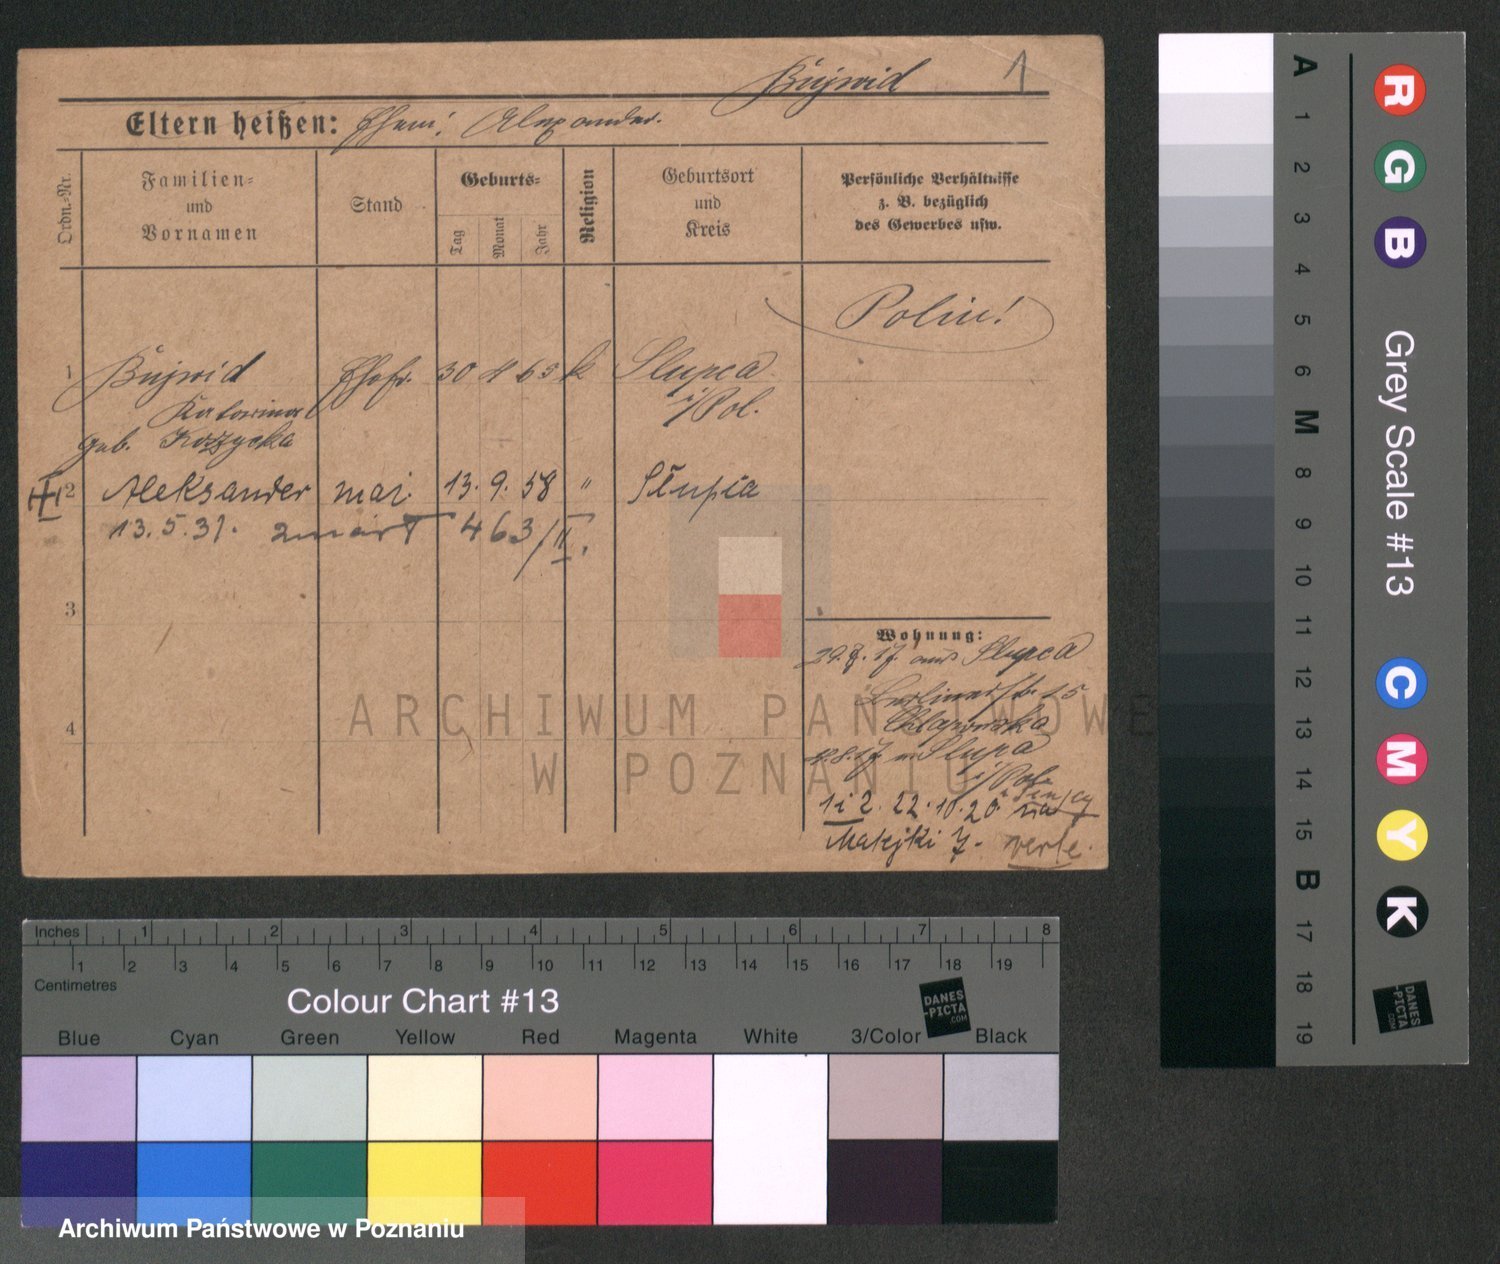 Bujwid 1
Eltern heißen: Ehem: Alexander.
Ordn.-Nr.
Familien-
und
Vornamen
Stand
Geburts-
Tag
Monat
Jahr
Religion
Geburtsort
und
Kreis
Persönliche Verhältnisse
z. B. bezüglich
des Gewerbes usw.
Polin!
1 Bujwid Ehefr. 30 63 k Slupca
Katarina i/Pol.
geb.
2 Aleksander mąż 13. 9. 58 " Słupia
13.5.31. zmarł 463/II.
3
4
Wohnung:
29.8.17. aus Slupca
Berlinerstr. 15
i/Pol.
1 i 2. 22.10.20. na
Matejki 7. verte.
ARCHIWUM PAŃSTWOWE
W POZNANIU
A 1 2 3 4 5 6 M 8 9 10 11 12 13 14 15 B 17 18 19
R G B Grey Scale #13 C M Y K
DANES
-PICTA
.COM
Inches 1 2 3 4 5 6 7 8
1 2 3 4 5 6 7 8 9 10 11 12 13 14 15 16 17 18 19
Centimetres
Colour Chart #13
DANES
-PICTA
.COM
Blue Cyan Green Yellow Red Magenta White 3/Color Black
Archiwum Państwowe w Poznaniu